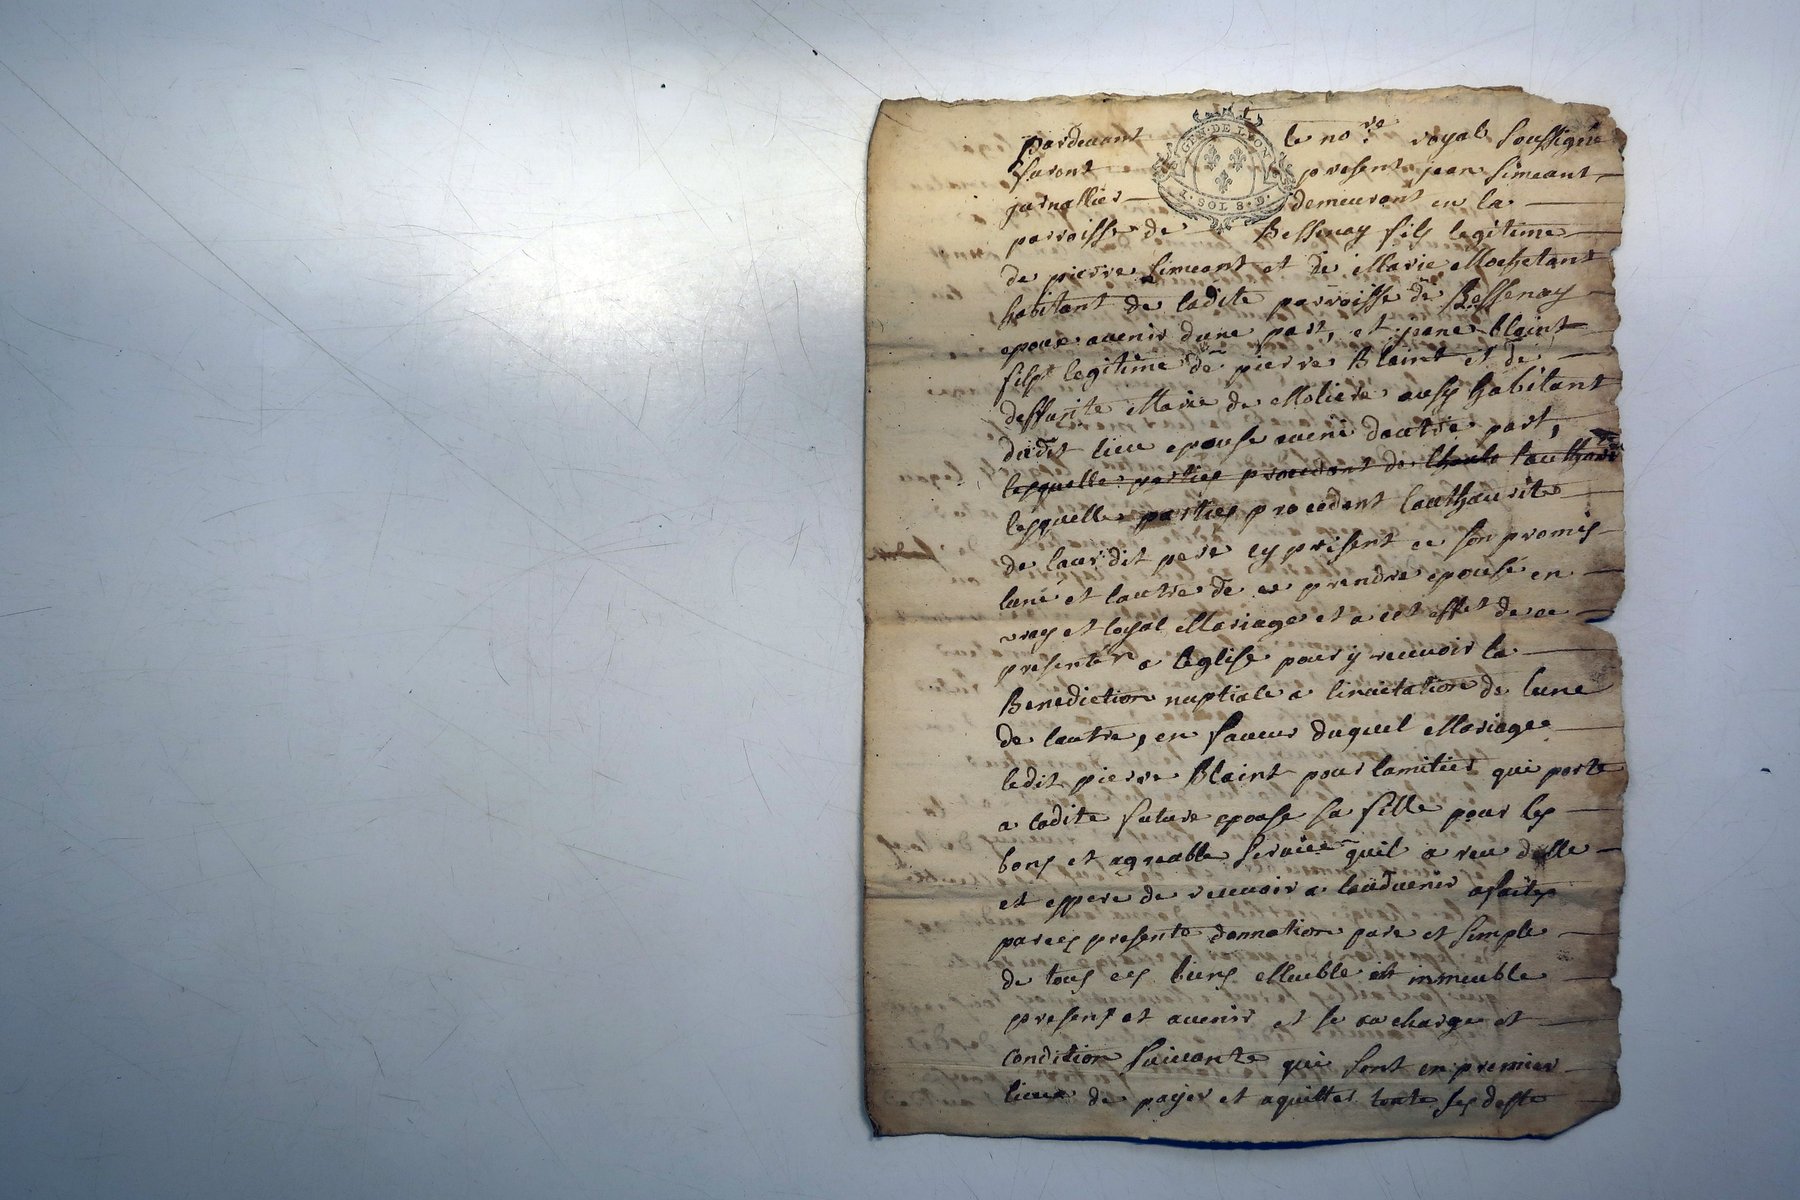 pardevant le no.re royal soussigné
GEN. DE LYON
furont present jean simeant
jurnallier demeurant en la
1. SOL 8. D.
parroisse de Bessenay fils legitime
de pierre simeant et de Marie Mochetant
habitant de ladite parroisse de Bessenay
epoux avenir dune part, et jeane blaint
fille legitime de pierre Blaint et de
deffunte Marie de Moliere ausy habitant
dudit lieu epouse aveni dautre part,
lesquelle parties procedant de lauthorite
lesquelle parties procedant lauthaurite
de leur dit pere cy present ce son promis
lune et lautre de ce prendre epouse en
vray et loyal Mariage et a cet effet de ce
presenter a leglise pour y recevoir la
Benediction nuptiale a linvitation de lune
de lautre, en faveur duquel Mariage
ledit pierre Blaint pour lamitier qui porte
a ladite future epouse sa fille pour les
bons et agreable service quil a reu delle
et espere de recevoir a laudvenir a faites
par ces presente donnation pure et simple
de tous ces biens Meuble et immeuble
present et avenir et se au charge et
condition suivante qui sont en premier
lieux de payer et aquitter toute ses deste